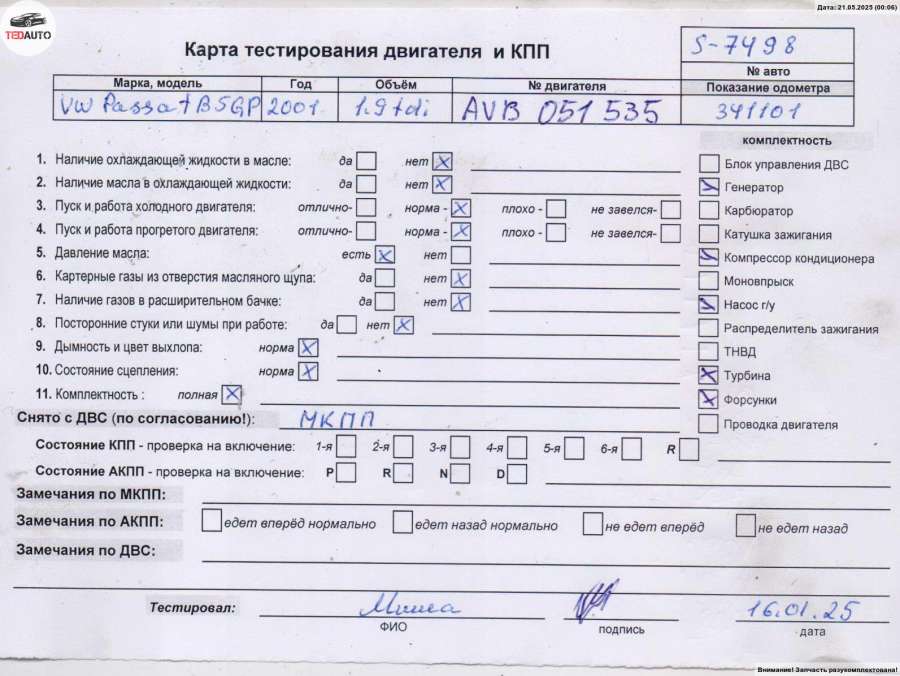 Дата: 21.05.2025 (00:06)
TEDAUTO
Карта тестирования двигателя и КПП
S-7498
№ авто
Марка, модель Год Объём № двигателя Показание одометра
VW Passat B5GP 2001 1.9 tdi AVB 051 535 341101
комплектность
1. Наличие охлаждающей жидкости в масле: да нет X
2. Наличие масла в охлаждающей жидкости: да нет X
3. Пуск и работа холодного двигателя: отлично- норма - X плохо - не завелся-
4. Пуск и работа прогретого двигателя: отлично- норма - X плохо - не завелся-
5. Давление масла: есть X нет
6. Картерные газы из отверстия масляного щупа: да нет X
7. Наличие газов в расширительном бачке: да нет X
8. Посторонние стуки или шумы при работе: да нет X
9. Дымность и цвет выхлопа: норма X
10. Состояние сцепления: норма X
11. Комплектность : полная X
Блок управления ДВС
Генератор
Карбюратор
Катушка зажигания
Компрессор кондиционера
Моновпрыск
Насос г/у
Распределитель зажигания
ТНВД
Турбина
Форсунки
Проводка двигателя
Снято с ДВС (по согласованию!): МКПП
Состояние КПП - проверка на включение: 1-я 2-я 3-я 4-я 5-я 6-я R
Состояние АКПП - проверка на включение: P R N D
Замечания по МКПП:
Замечания по АКПП: едет вперёд нормально едет назад нормально не едет вперёд не едет назад
Замечания по ДВС:
Тестировал: Миша 16.01.25
ФИО подпись дата
Внимание! Запчасть разукомплектована!